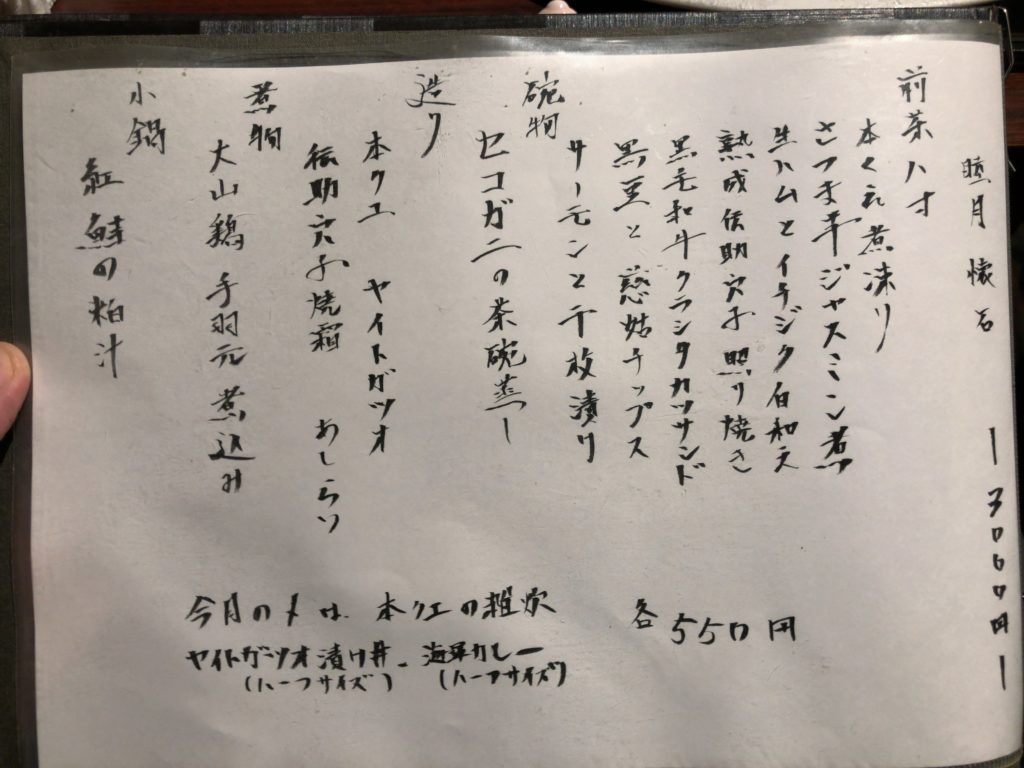 睦月懐石 ー3000円ー
前菜八寸
本くえ煮凍り
さつま芋ジャスミン煮
生ハムとイチジク白和え
熟成伝助穴子照り焼き
黒毛和牛クラシタカツサンド
黒豆と慈姑チップス
サーモンと千枚漬け
碗物
セコガニの茶碗蒸し
造り
本クエ ヤイトガツオ
伝助穴子焼霜 あしらい
煮物
大山鶏手羽元煮込み
小鍋
紅鮭の粕汁
今月の〆は、本クエの雑炊
ヤイトガツオ漬け丼 (ハーフサイズ)
海鮮カレー (ハーフサイズ)
各550円